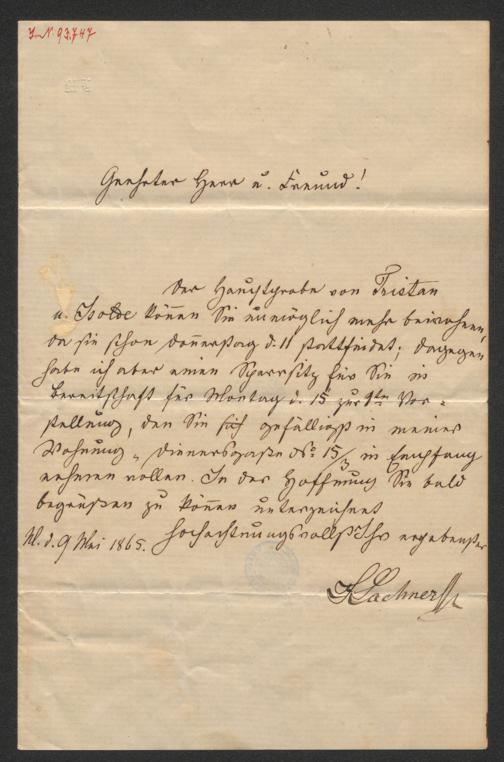 I.N. 93.747
Geehrter Herr u. Freund!
Der Hauptprobe von Tristan
u. Isolde können Sie unmöglich mehr beiwohnen,
da sie schon Donnerstag d. 11 stattfindet; dagegen
habe ich aber einen Sperrsitz für Sie in
Bereitschaft für Montag d. 15 zur 1ten Vor-
stellung, den Sie sich gefälligst in meiner
Wohnung, Dienersgasse No 15/3 in Empfang
nehmen wollen. In der Hoffnung Sie bald
begrüßen zu können unterzeichnet
M. d. 9 Mai 1865. Hochachtungsvollst Ihr ergebenster
Lachner